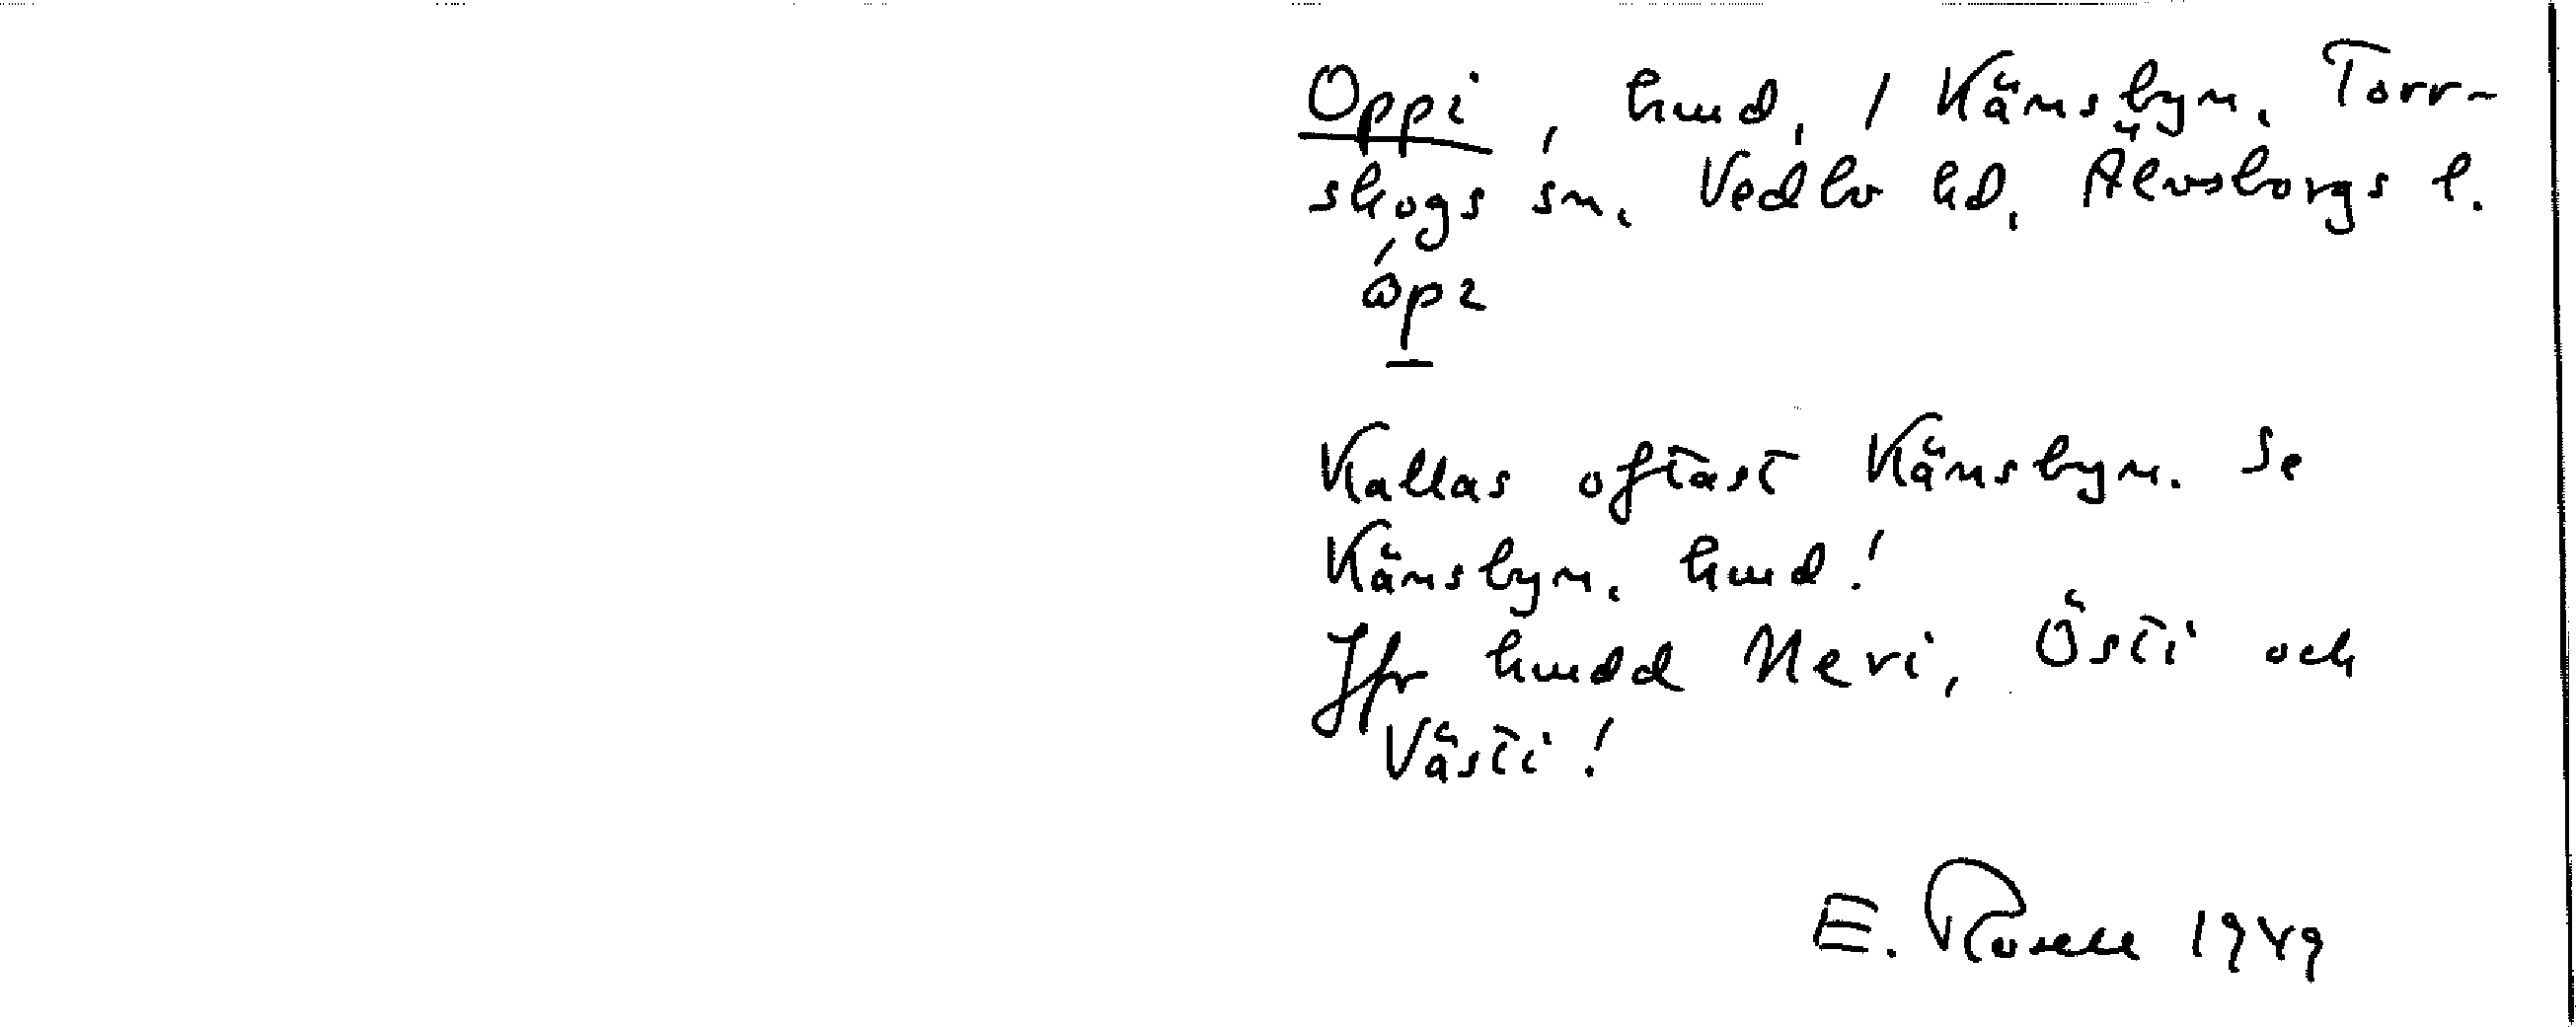 Oppi, hmd, 1 Känsbyn, Torr-
skogs sn, Vedbo hd, Älvsborgs l.
Kallas oftast Känsbyn. Se
Känsbyn, hmd!
Jfr hmdd Neri, Östi och
Västi!
E. Rosell 1949